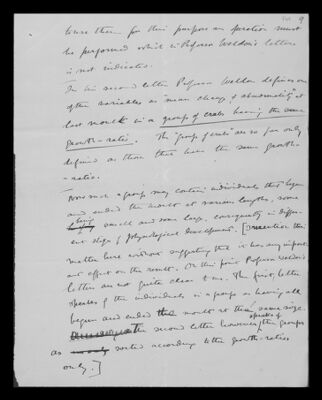 9
to use them for this purpose an operation must
be performed which in Professor Weldon's letters
is not indicated.
In his second letter Professor Weldon defines one
of the variables as "mean change of abnormality at
last moult in a group of crabs having the same
growth-ratio. The "group of crabs" are so far only
defined as those that have the same growth-
-ratio.
Now such a group may contain individuals that began
and ended the moult at various lengths, some
being small and some large, consequently in differ-
ent stages of physiological development. [I mention this
matter here without suggesting that it has any import-
ant effect on the result. On this point Professor Weldon's
letters are not quite clear to me. The first letter
speaks of the individuals in a group as having all
begun and ended the moult at the same size.
The second letter however speaks of the groups
as sorted according to the growth-ratios
only.]